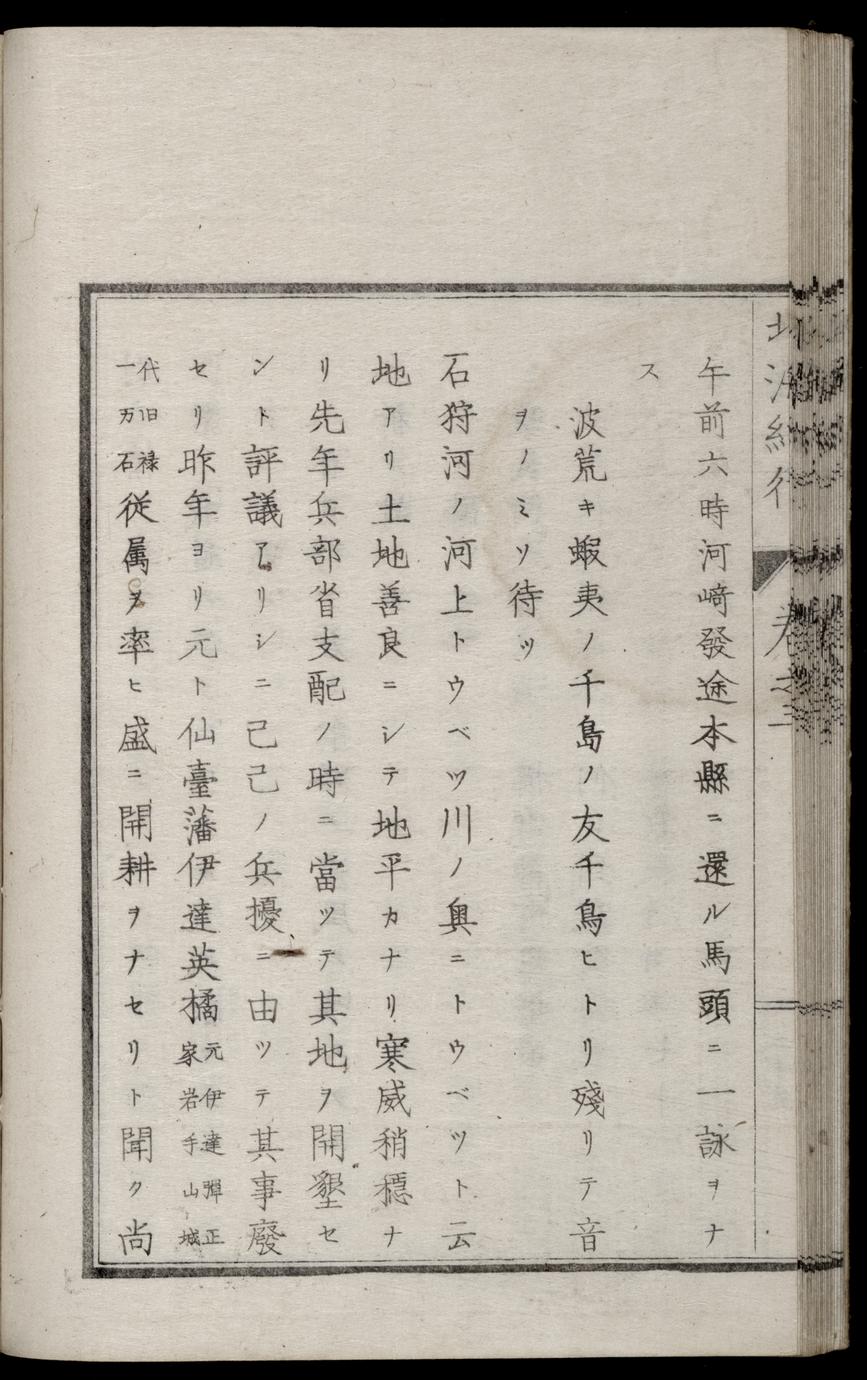 午前六時河﨑發途本縣ニ還ル馬頭ニ一詠ヲナ
ス
波荒キ蝦夷ノ千島ノ友千鳥ヒトリ殘リテ音
ヲノミソ待ツ
石狩河ノ河上トウベツ川ノ奥ニトウベツト云
地アリ土地善良ニシテ地平カナリ寒威稍穩ナ
リ先年兵部省支配ノ時ニ當ツテ其地ヲ開墾セ
ント評議アリシニ己己ノ兵擾ニ由ツテ其事廢
セリ昨年ヨリ元ト仙臺藩伊達英橘元伊達彈正家岩手山城
代旧禄一万石従属ヲ率ヒ盛ニ開耕ヲナセリト聞ク尚
紀行
卷之